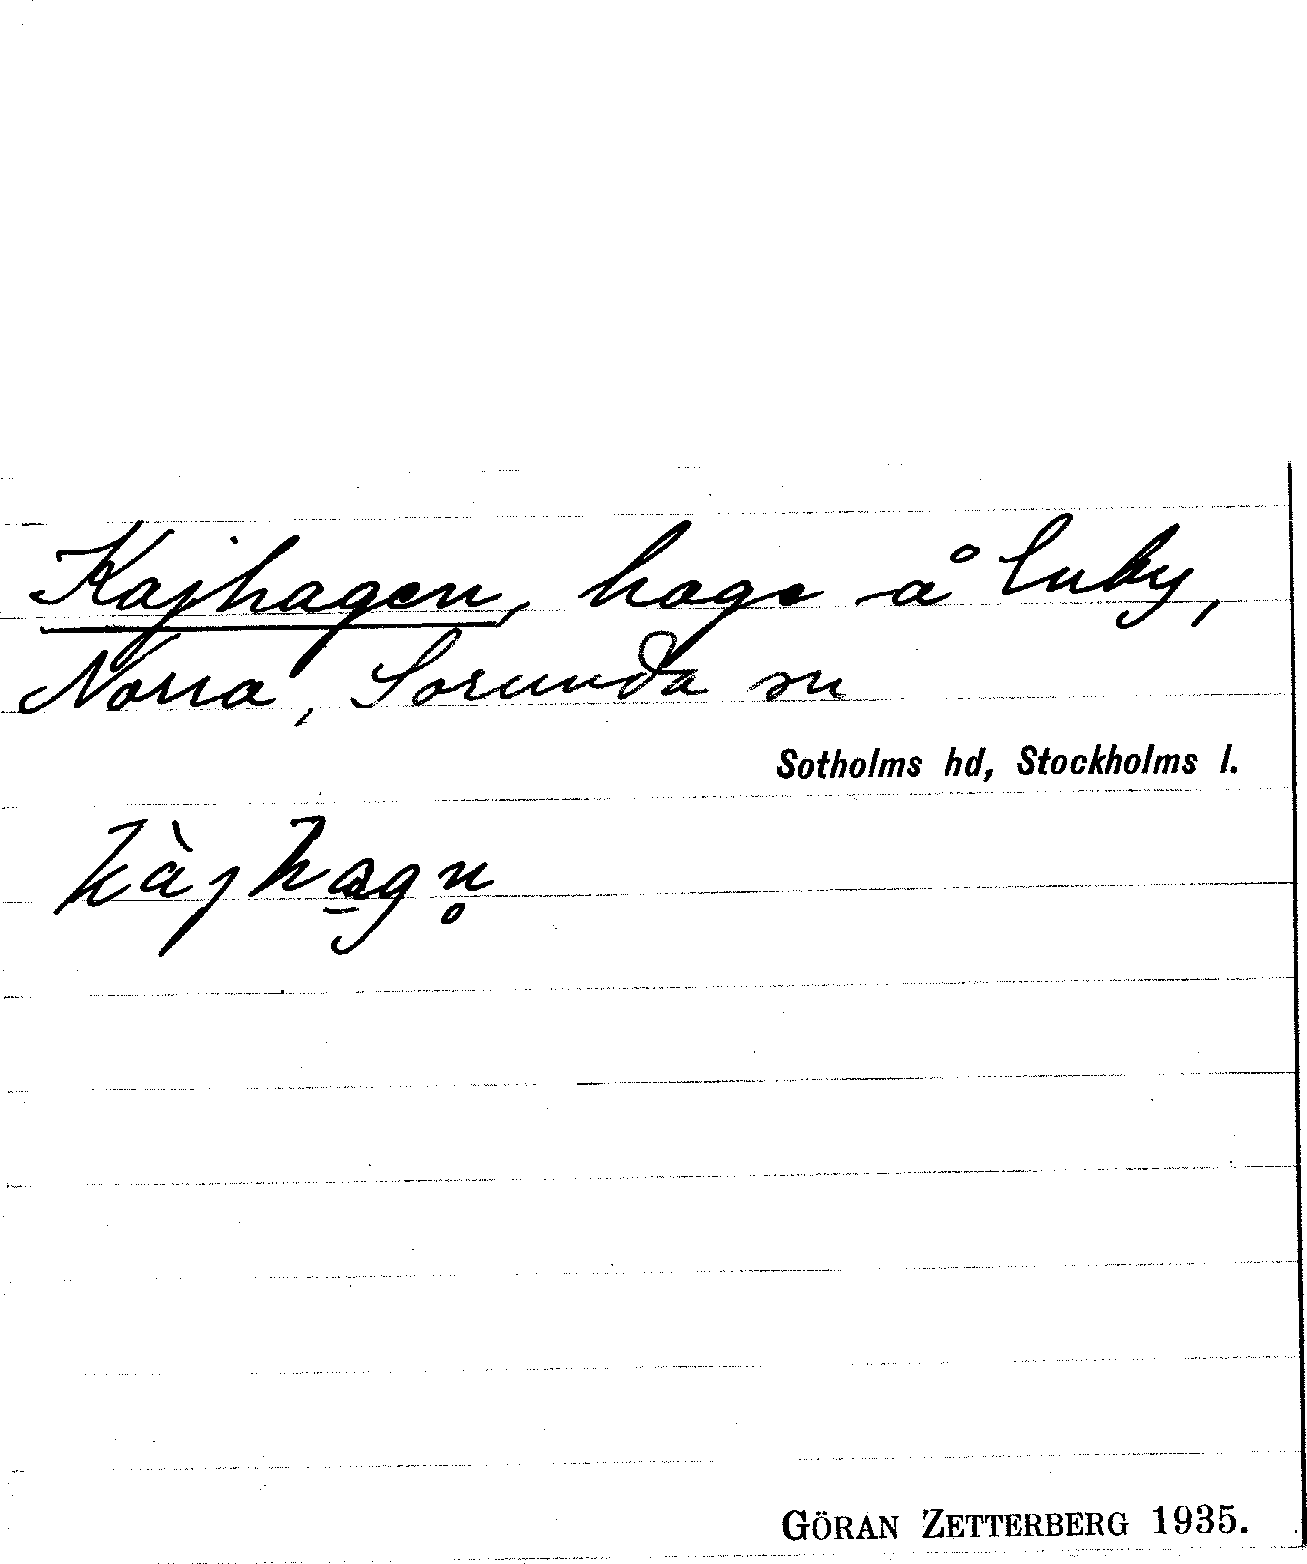 Kajhagen, hage å Luby,
Norra, Sorunda sn
Sotholms hd, Stockholms l.
kàjha̲gn̥
GÖRAN ZETTERBERG 1935.